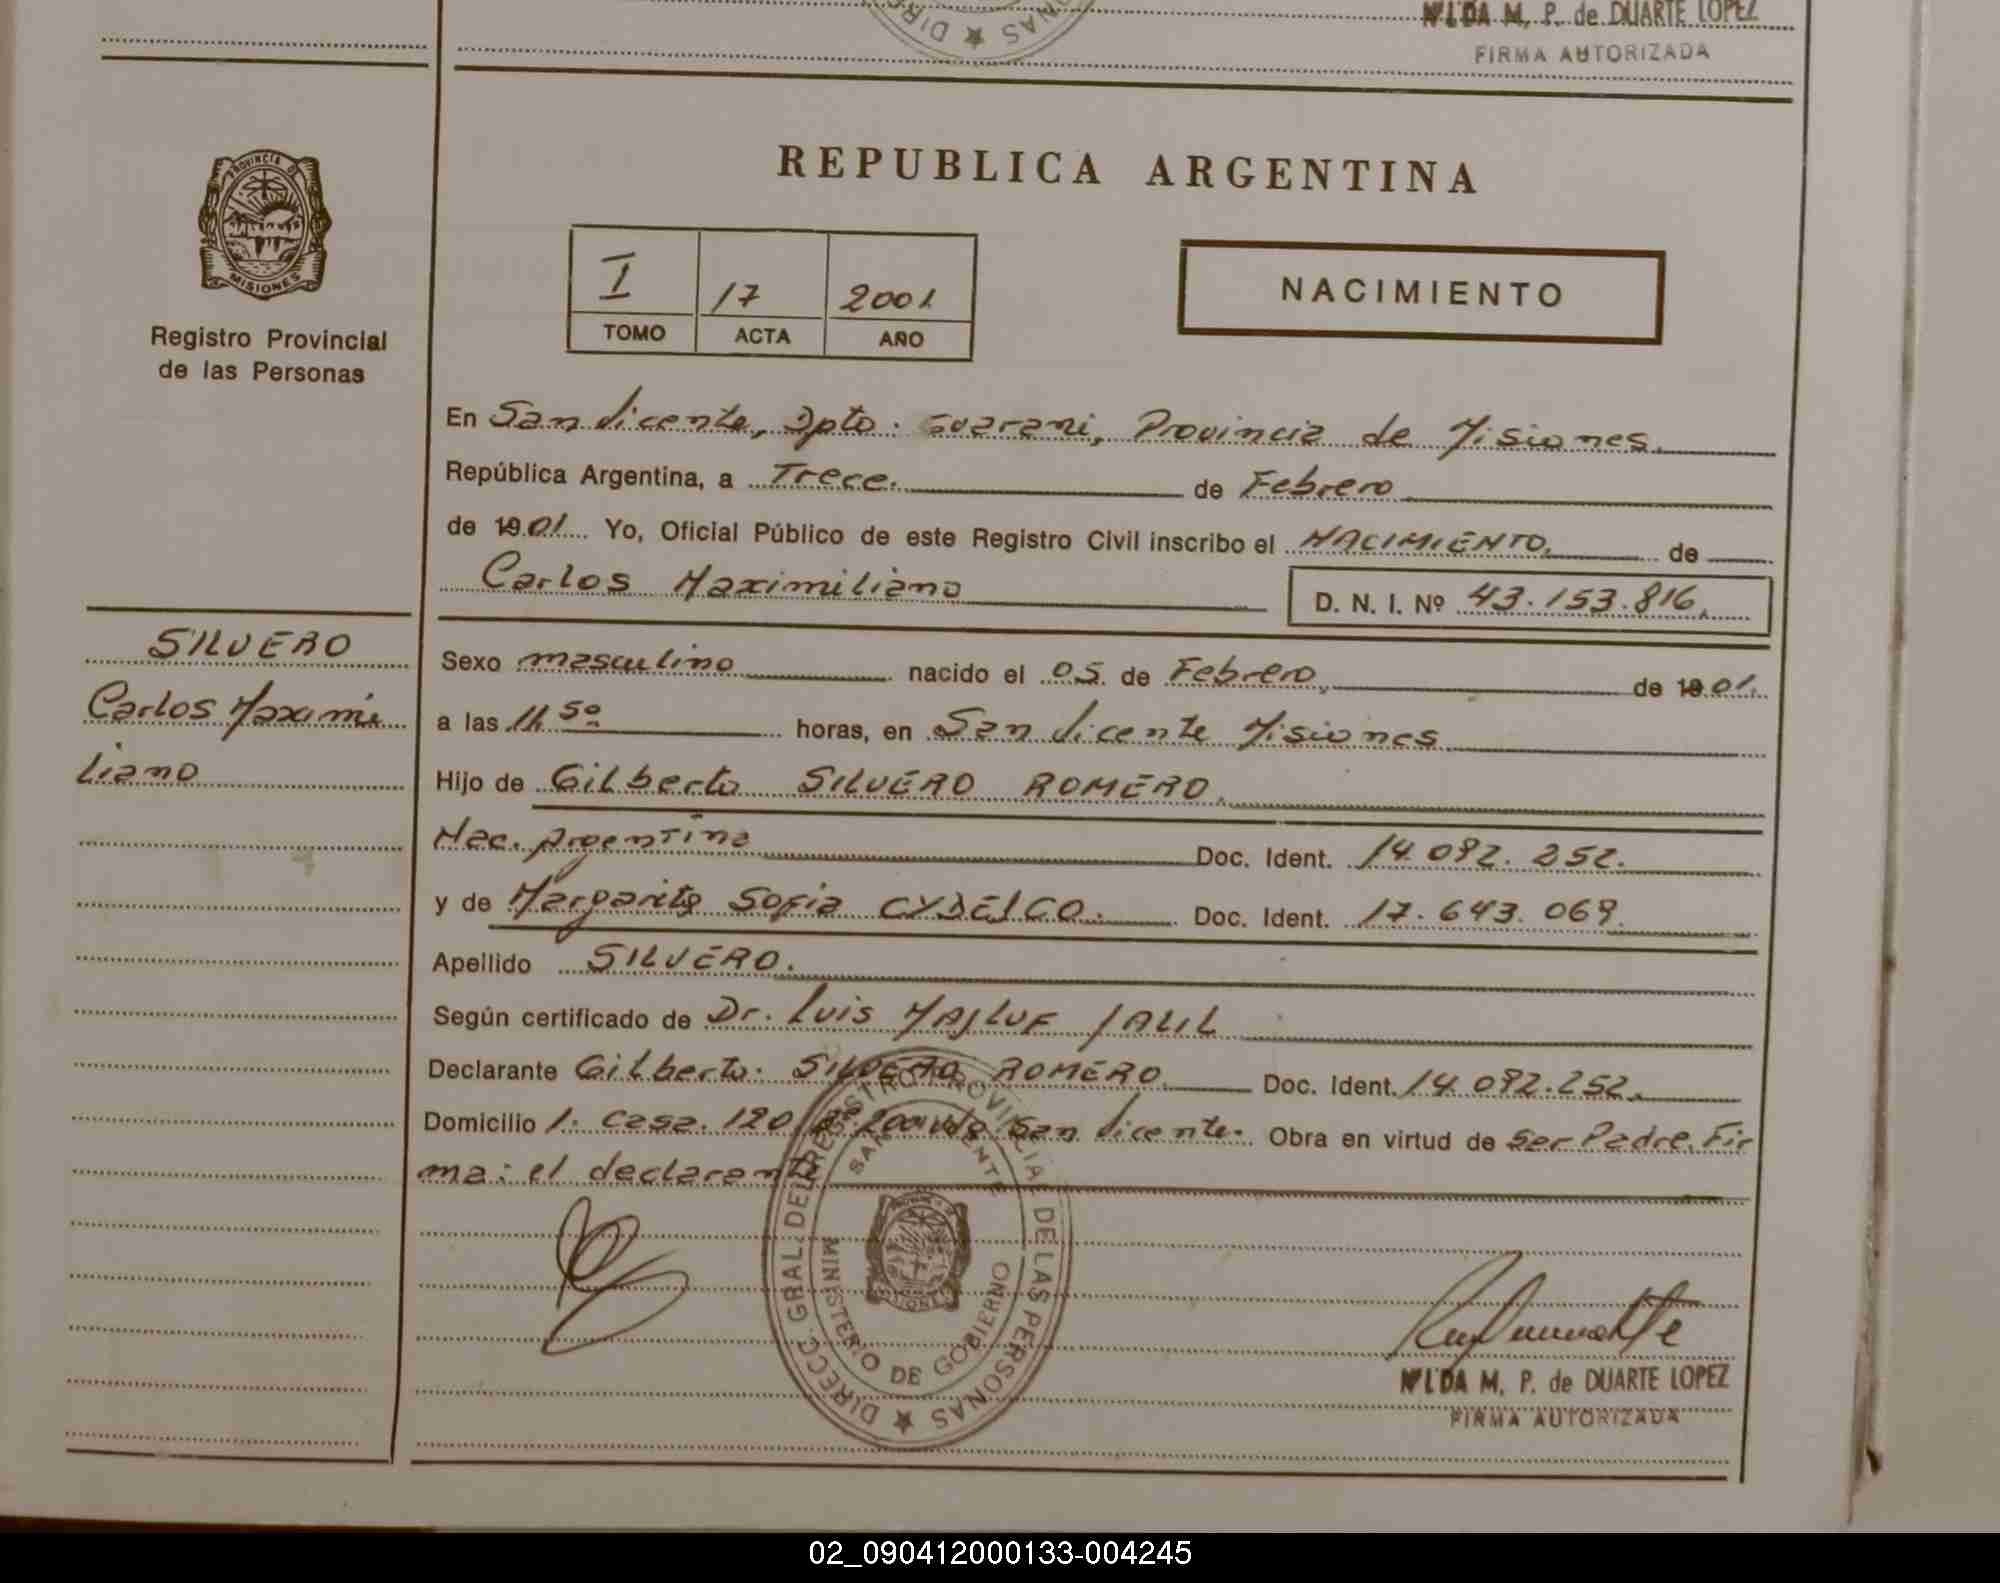 NILDA M. P. de DUARTE LOPEZ
FIRMA AUTORIZADA
PROVINCIA DE
MISIONES
Registro Provincial
de las Personas
REPUBLICA ARGENTINA
I 17 2001
TOMO ACTA AÑO
NACIMIENTO
En San Vicente, Dpto. Guarani, Provincia de Misiones.
República Argentina, a Trece. de Febrero
de 1901 Yo, Oficial Público de este Registro Civil inscribo el NACIMIENTO. de
Carlos Maximiliano
D. N. I. Nº 43.153.816.
SILVERO
Carlos Maximi
liano
Sexo masculino nacido el 05 de Febrero, de 1901.
a las 11,50 horas, en San Vicente Misiones
Hijo de Gilberto SILVERO ROMERO.
Nac. Argentina Doc. Ident. 14.092.252.
y de Margarita Sofia Doc. Ident. 17.643.069.
Apellido SILVERO.
Según certificado de Dr. Luis MAJLUF JALIL
Declarante Gilberto. SILVERO ROMERO Doc. Ident. 14.092.252.
Domicilio 1. Casa. 120 San Vicente. Obra en virtud de Ser Padre. Fir
ma: el declarante
DIRECC. GRAL. DEL REGISTRO PROVINCIAL DE LAS PERSONAS
SAN VICENTE
MINISTERIO DE GOBIERNO
NILDA M. P. de DUARTE LOPEZ
FIRMA AUTORIZADA
02_090412000133-004245